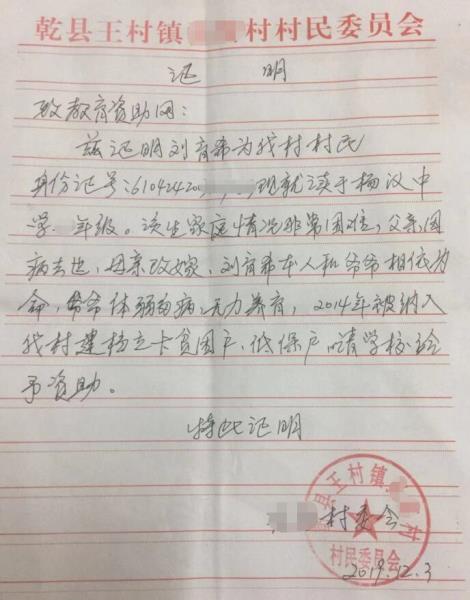 乾县王村镇 村村民委员会
证 明
致教育资助网：
兹证明刘育希为我村村民
身份证号:61042420 ,现就读于杨汉中
学 年级。该生家庭情况非常困难,父亲因
病去世,母亲改嫁,刘育希本人和爷爷相依为
命,爷爷体弱多病,无力养育,2014年被纳入
我村建档立卡贫困户,低保户,请学校给
予资助。
特此证明
县王村镇 村
村委会
村民委员会
2019.12.3